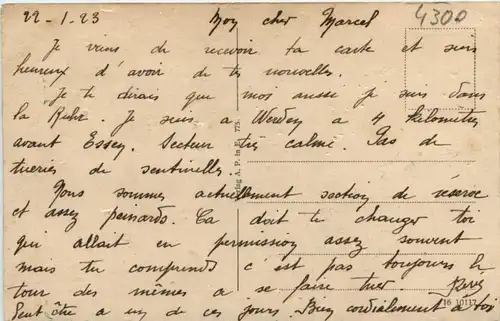 22-1.23 Mon cher Marcel 4300
Je viens de recevoir ta carte et suis
heureux d'avoir de tes nouvelles.
Je te dirais que moi aussi je suis dans
la Ruhr. Je suis a Werden a 4 kilomètres
avant Essen. Secteur très calme. Pas de
tueries de sentinelles
Nous sommes actuellement section de réserve
et assez peinards. Ca doit te changer toi
qui allait en permission assez souvent
mais tu comprends c'est pas toujours le
tour des mêmes a se faire tuer
Peut être a un de ces jours. Bien cordialement a toi
A. P. in F. 775.
16 10117